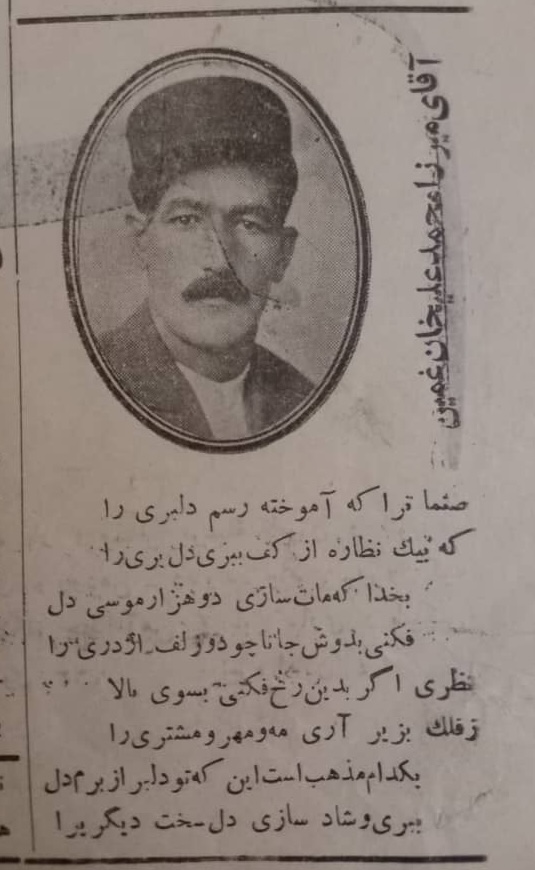 آقای میرزا محمد علیخان غمین
صنما ترا که آموخته رسم دلبری را
که بیك نظاره از کف ببری دل پری را
بخدا که مات سازی دو هزار موسی دل
فکنی بدوش جانا چو دو زلف اژدری را
نظری اگر بدین رخ فکنی بسوی بالا
ز فلك بزیر آری مه و مهر و مشتری را
بکدام مذهب است این که تو دلبر از برم دل
ببری و شاد سازی دل سخت دیگریرا